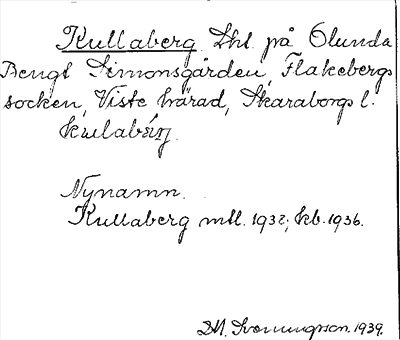 Kullaberg Lht. på Olunda
Bengt Simonsgården, Flakebergs
socken, Viste härad, Skaraborgs l.
Nynamn.
Kullaberg mtl. 1932; kb. 1936.
1939.